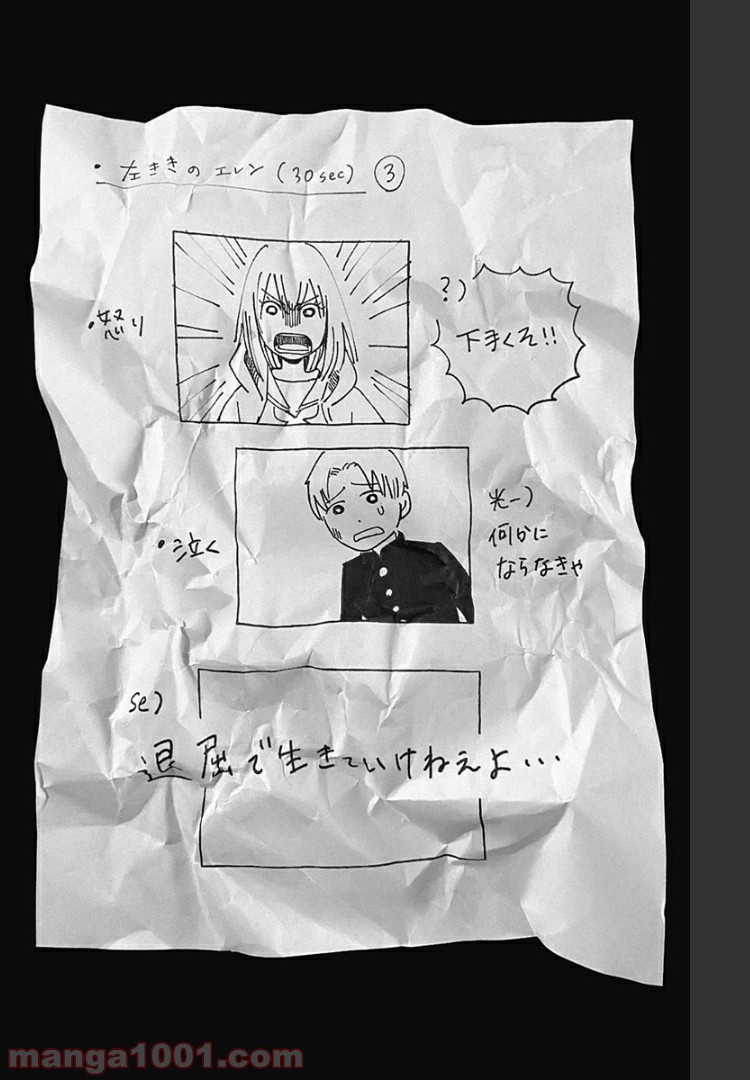 ・左ききのエレン(30sec) ③
・怒り
?)
下手くそ!!
・泣く
光一)
何かに
ならなきゃ
se)
退屈で生きていけねえよ…
manga1001.com